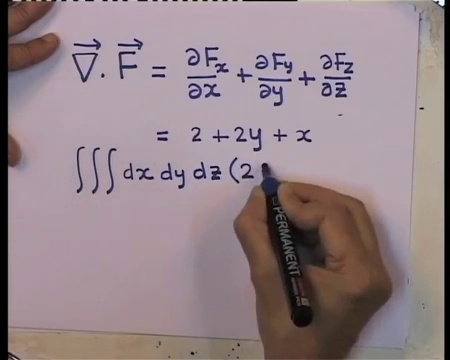 ∇⃗ . F⃗ = ∂Fx/∂x + ∂Fy/∂y + ∂Fz/∂z
= 2 + 2y + x
∫∫∫ dx dy dz (2
PERMANENT